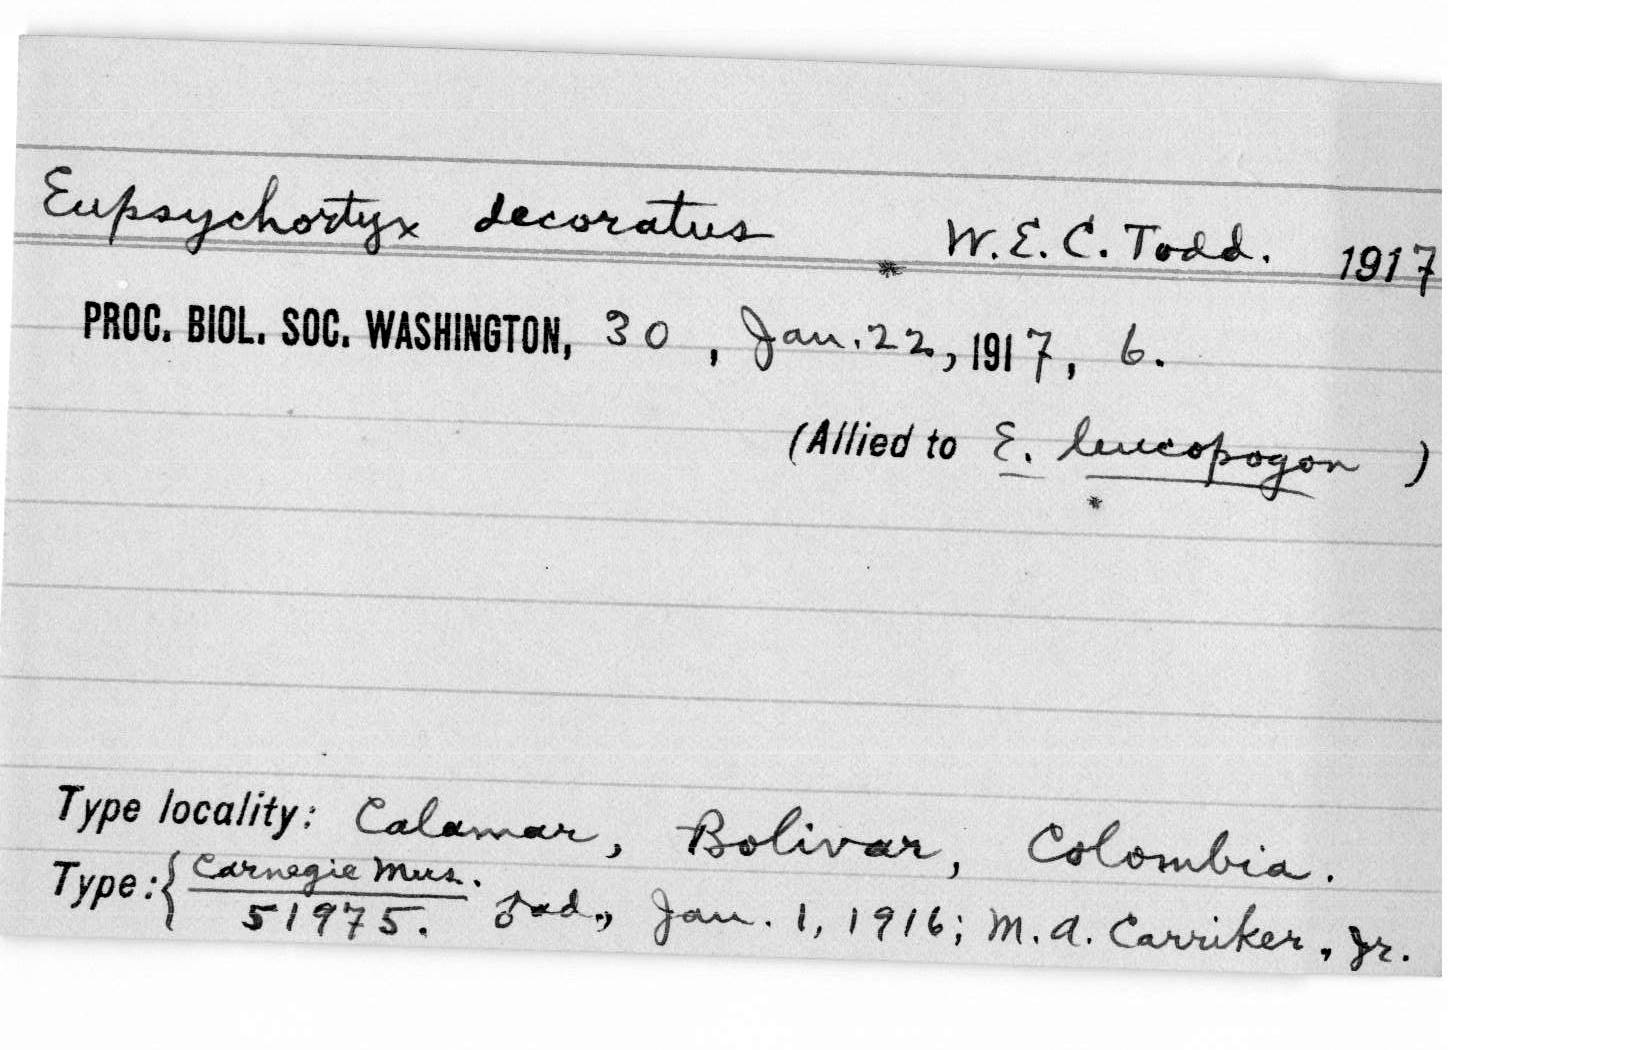 Eupsychortyx decoratus * W.E.C. Todd. 1917
PROC. BIOL. SOC. WASHINGTON, 30, Jan. 22, 1917, 6.
(Allied to E. leucopogon )
*
Type locality: Calamar, Bolivar, Colombia.
Type: { Carnegie Mus.
51975. ♂ ad., Jan. 1, 1916; M.A. Carriker, Jr.